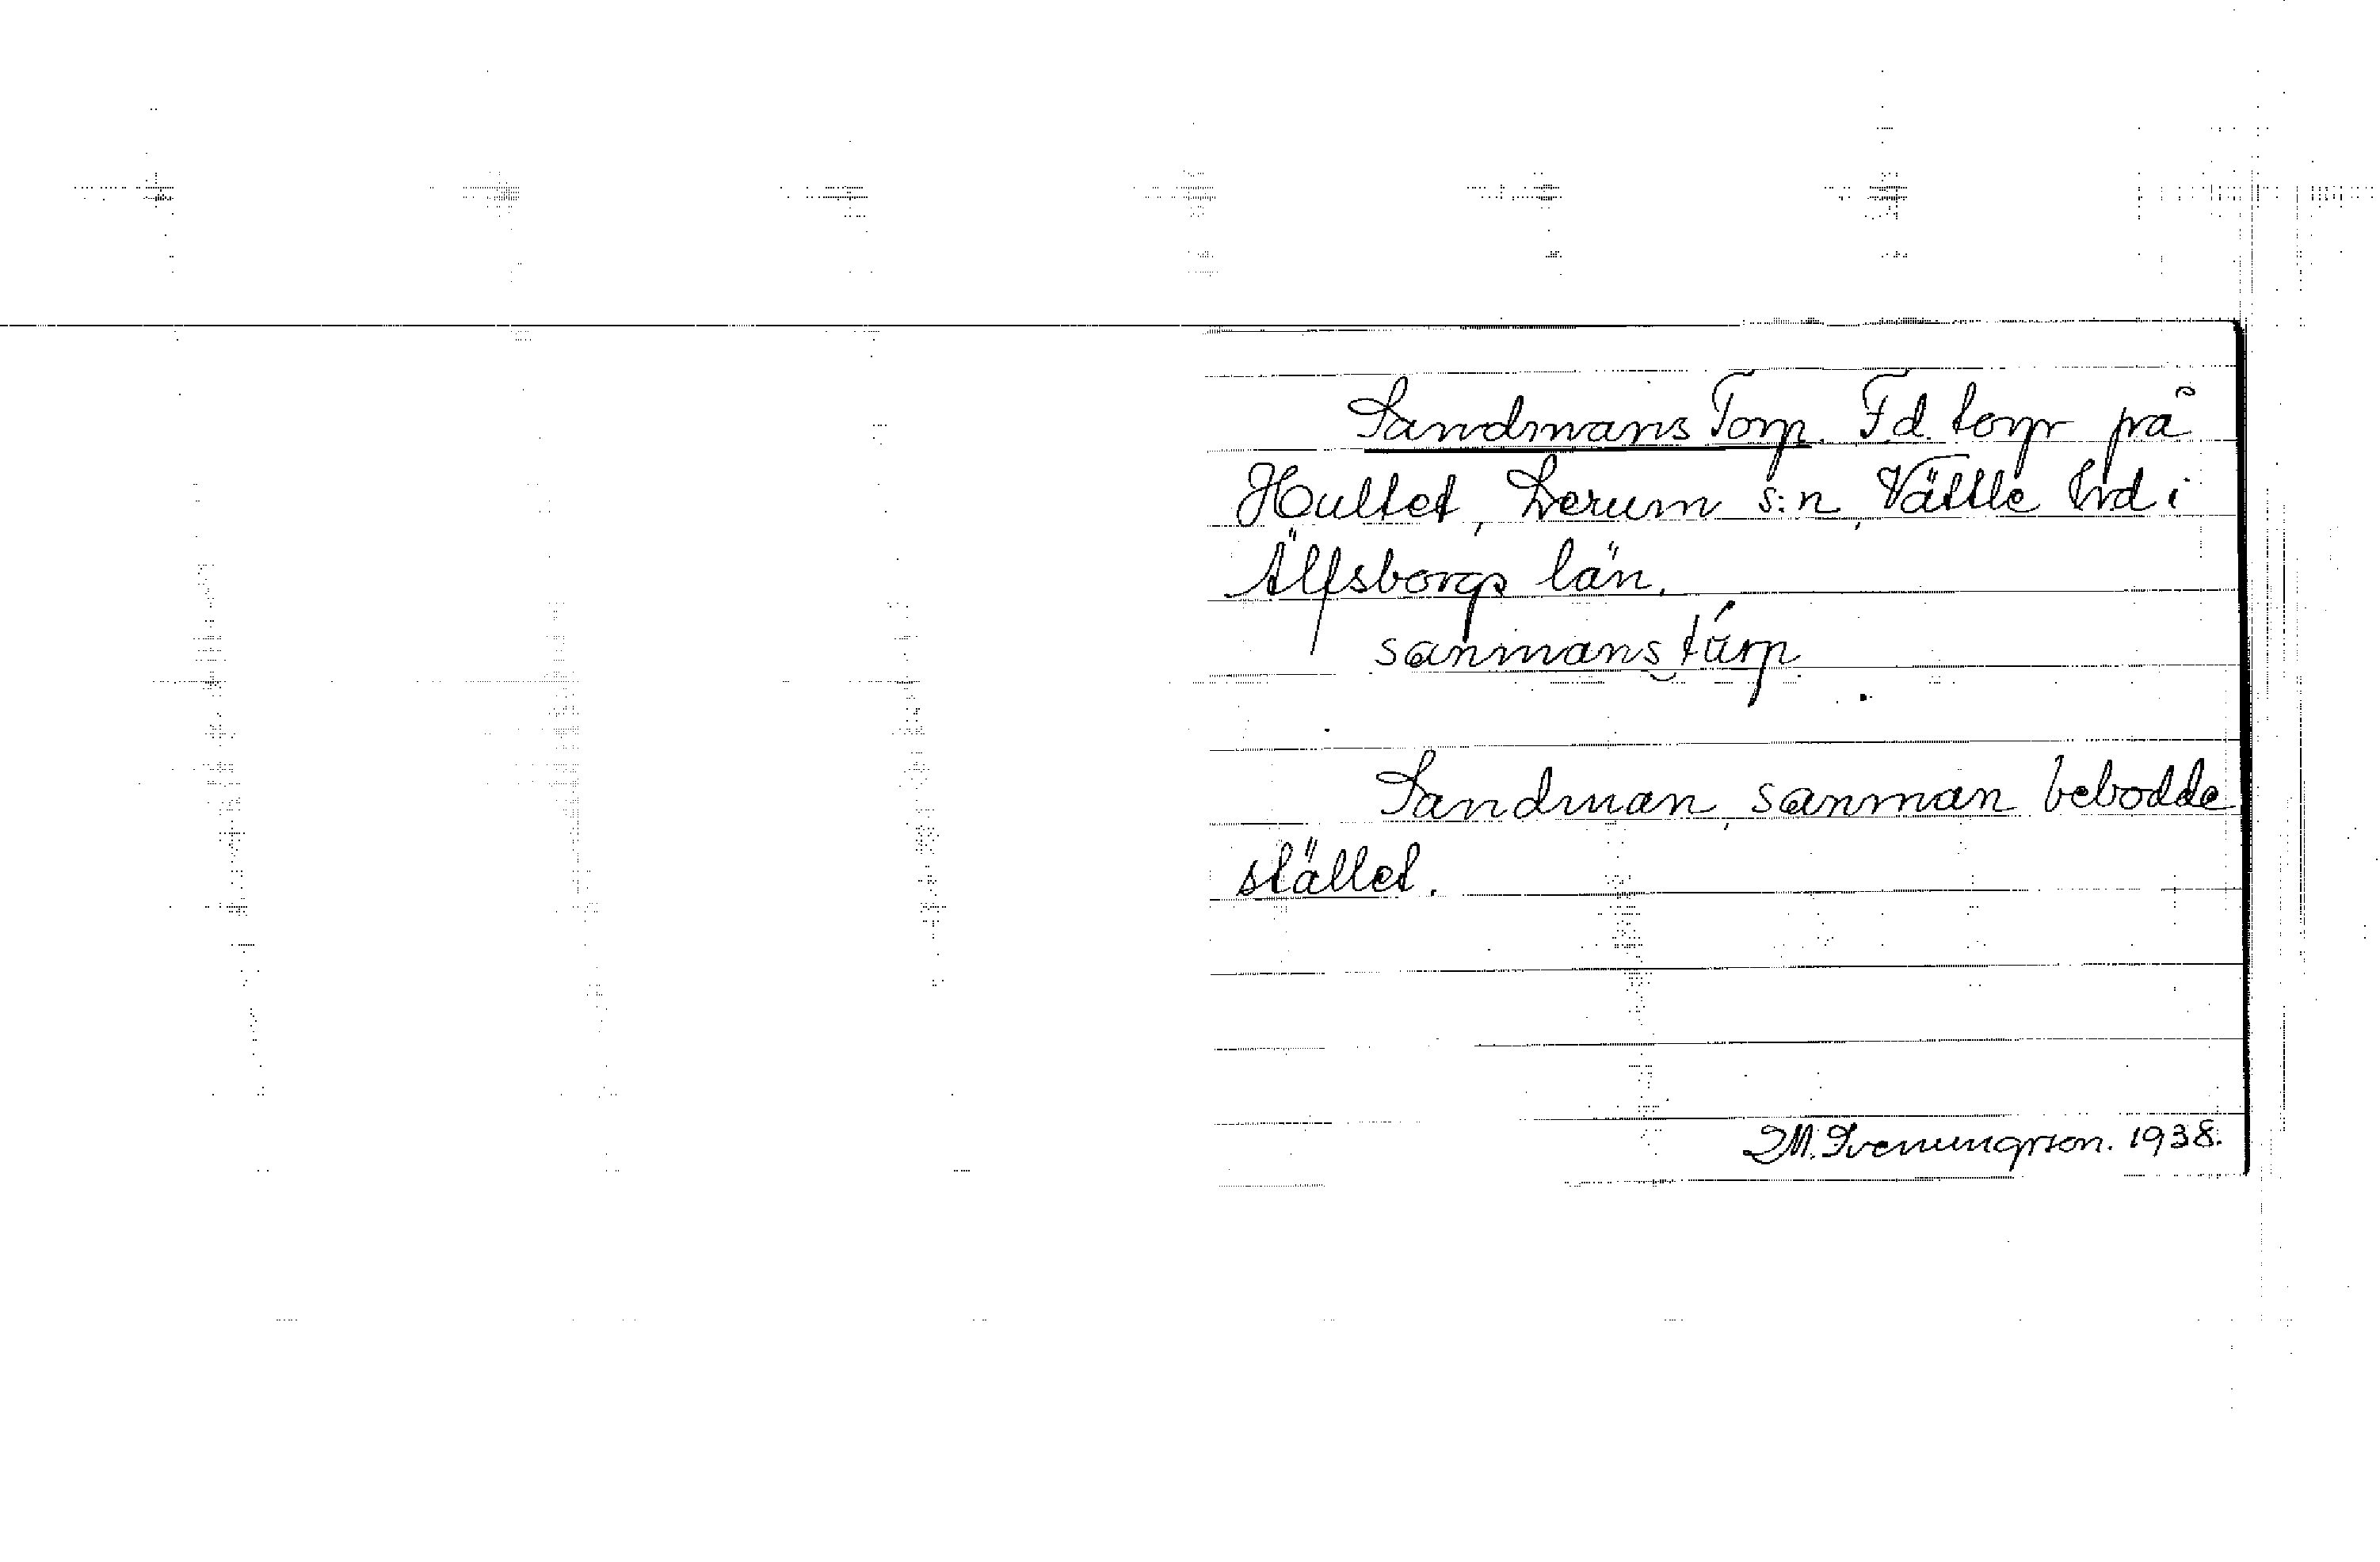 Sandmans Torp. F.d. torp på
Hultet, Lerum s:n, Vättle hd i
Älfsborgs län.
sanmans túrp
Sandman, sanman bebodde
stället.
M. Svenungson. 1938.